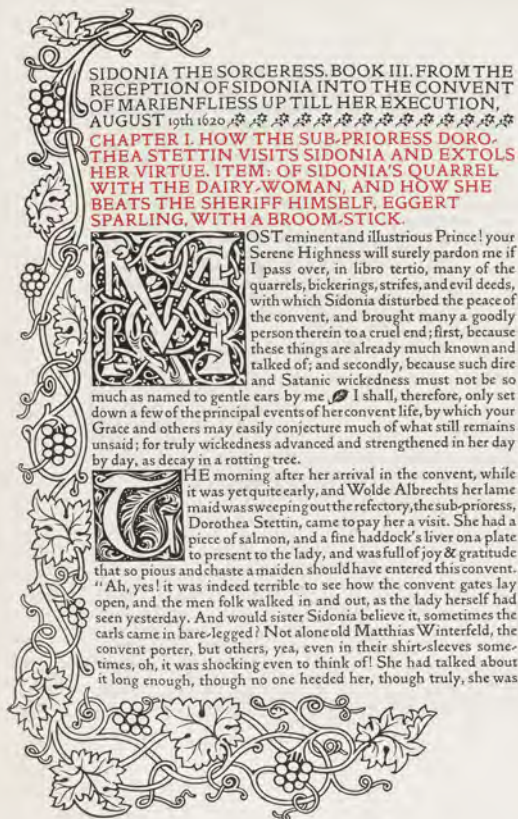 SIDONIA THE SORCERESS. BOOK III. FROM THE
RECEPTION OF SIDONIA INTO THE CONVENT
OF MARIENFLIESS UP TILL HER EXECUTION,
AUGUST 19th 1620
CHAPTER I. HOW THE SUB-PRIORESS DORO-
THEA STETTIN VISITS SIDONIA AND EXTOLS
HER VIRTUE. ITEM: OF SIDONIA'S QUARREL
WITH THE DAIRY-WOMAN, AND HOW SHE
BEATS THE SHERIFF HIMSELF, EGGERT
SPARLING, WITH A BROOM-STICK.
MOST eminent and illustrious Prince! your
Serene Highness will surely pardon me if
I pass over, in libro tertio, many of the
quarrels, bickerings, strifes, and evil deeds,
with which Sidonia disturbed the peace of
the convent, and brought many a goodly
person therein to a cruel end; first, because
these things are already much known and
talked of; and secondly, because such dire
and Satanic wickedness must not be so
much as named to gentle ears by me I shall, therefore, only set
down a few of the principal events of her convent life, by which your
Grace and others may easily conjecture much of what still remains
unsaid; for truly wickedness advanced and strengthened in her day
by day, as decay in a rotting tree.
THE morning after her arrival in the convent, while
it was yet quite early, and Wolde Albrechts her lame
maid was sweeping out the refectory, the sub-prioress,
Dorothea Stettin, came to pay her a visit. She had a
piece of salmon, and a fine haddock's liver on a plate
to present to the lady, and was full of joy & gratitude
that so pious and chaste a maiden should have entered this convent.
"Ah, yes! it was indeed terrible to see how the convent gates lay
open, and the men folk walked in and out, as the lady herself had
seen yesterday. And would sister Sidonia believe it, sometimes the
carls came in bare-legged? Not alone old Matthias Winterfeld, the
convent porter, but others, yea, even in their shirt-sleeves some-
times, oh, it was shocking even to think of! She had talked about
it long enough, though no one heeded her, though truly, she was